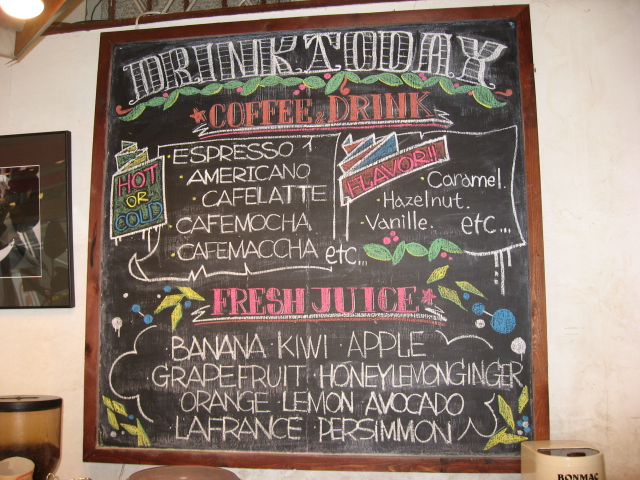 DRINK TODAY
COFFEE & DRINK
ESPRESSO
AMERICANO
CAFELATTE
CAFEMOCHA
CAFEMACCHA etc...
HOT
OR
COLD
FLAVOR!!
Caramel.
Hazelnut.
Vanille. etc...
FRESH JUICE
BANANA KIWI APPLE
GRAPEFRUIT HONEYLEMONGINGER
ORANGE LEMON AVOCADO
LAFRANCE PERSIMMON
BONMAC